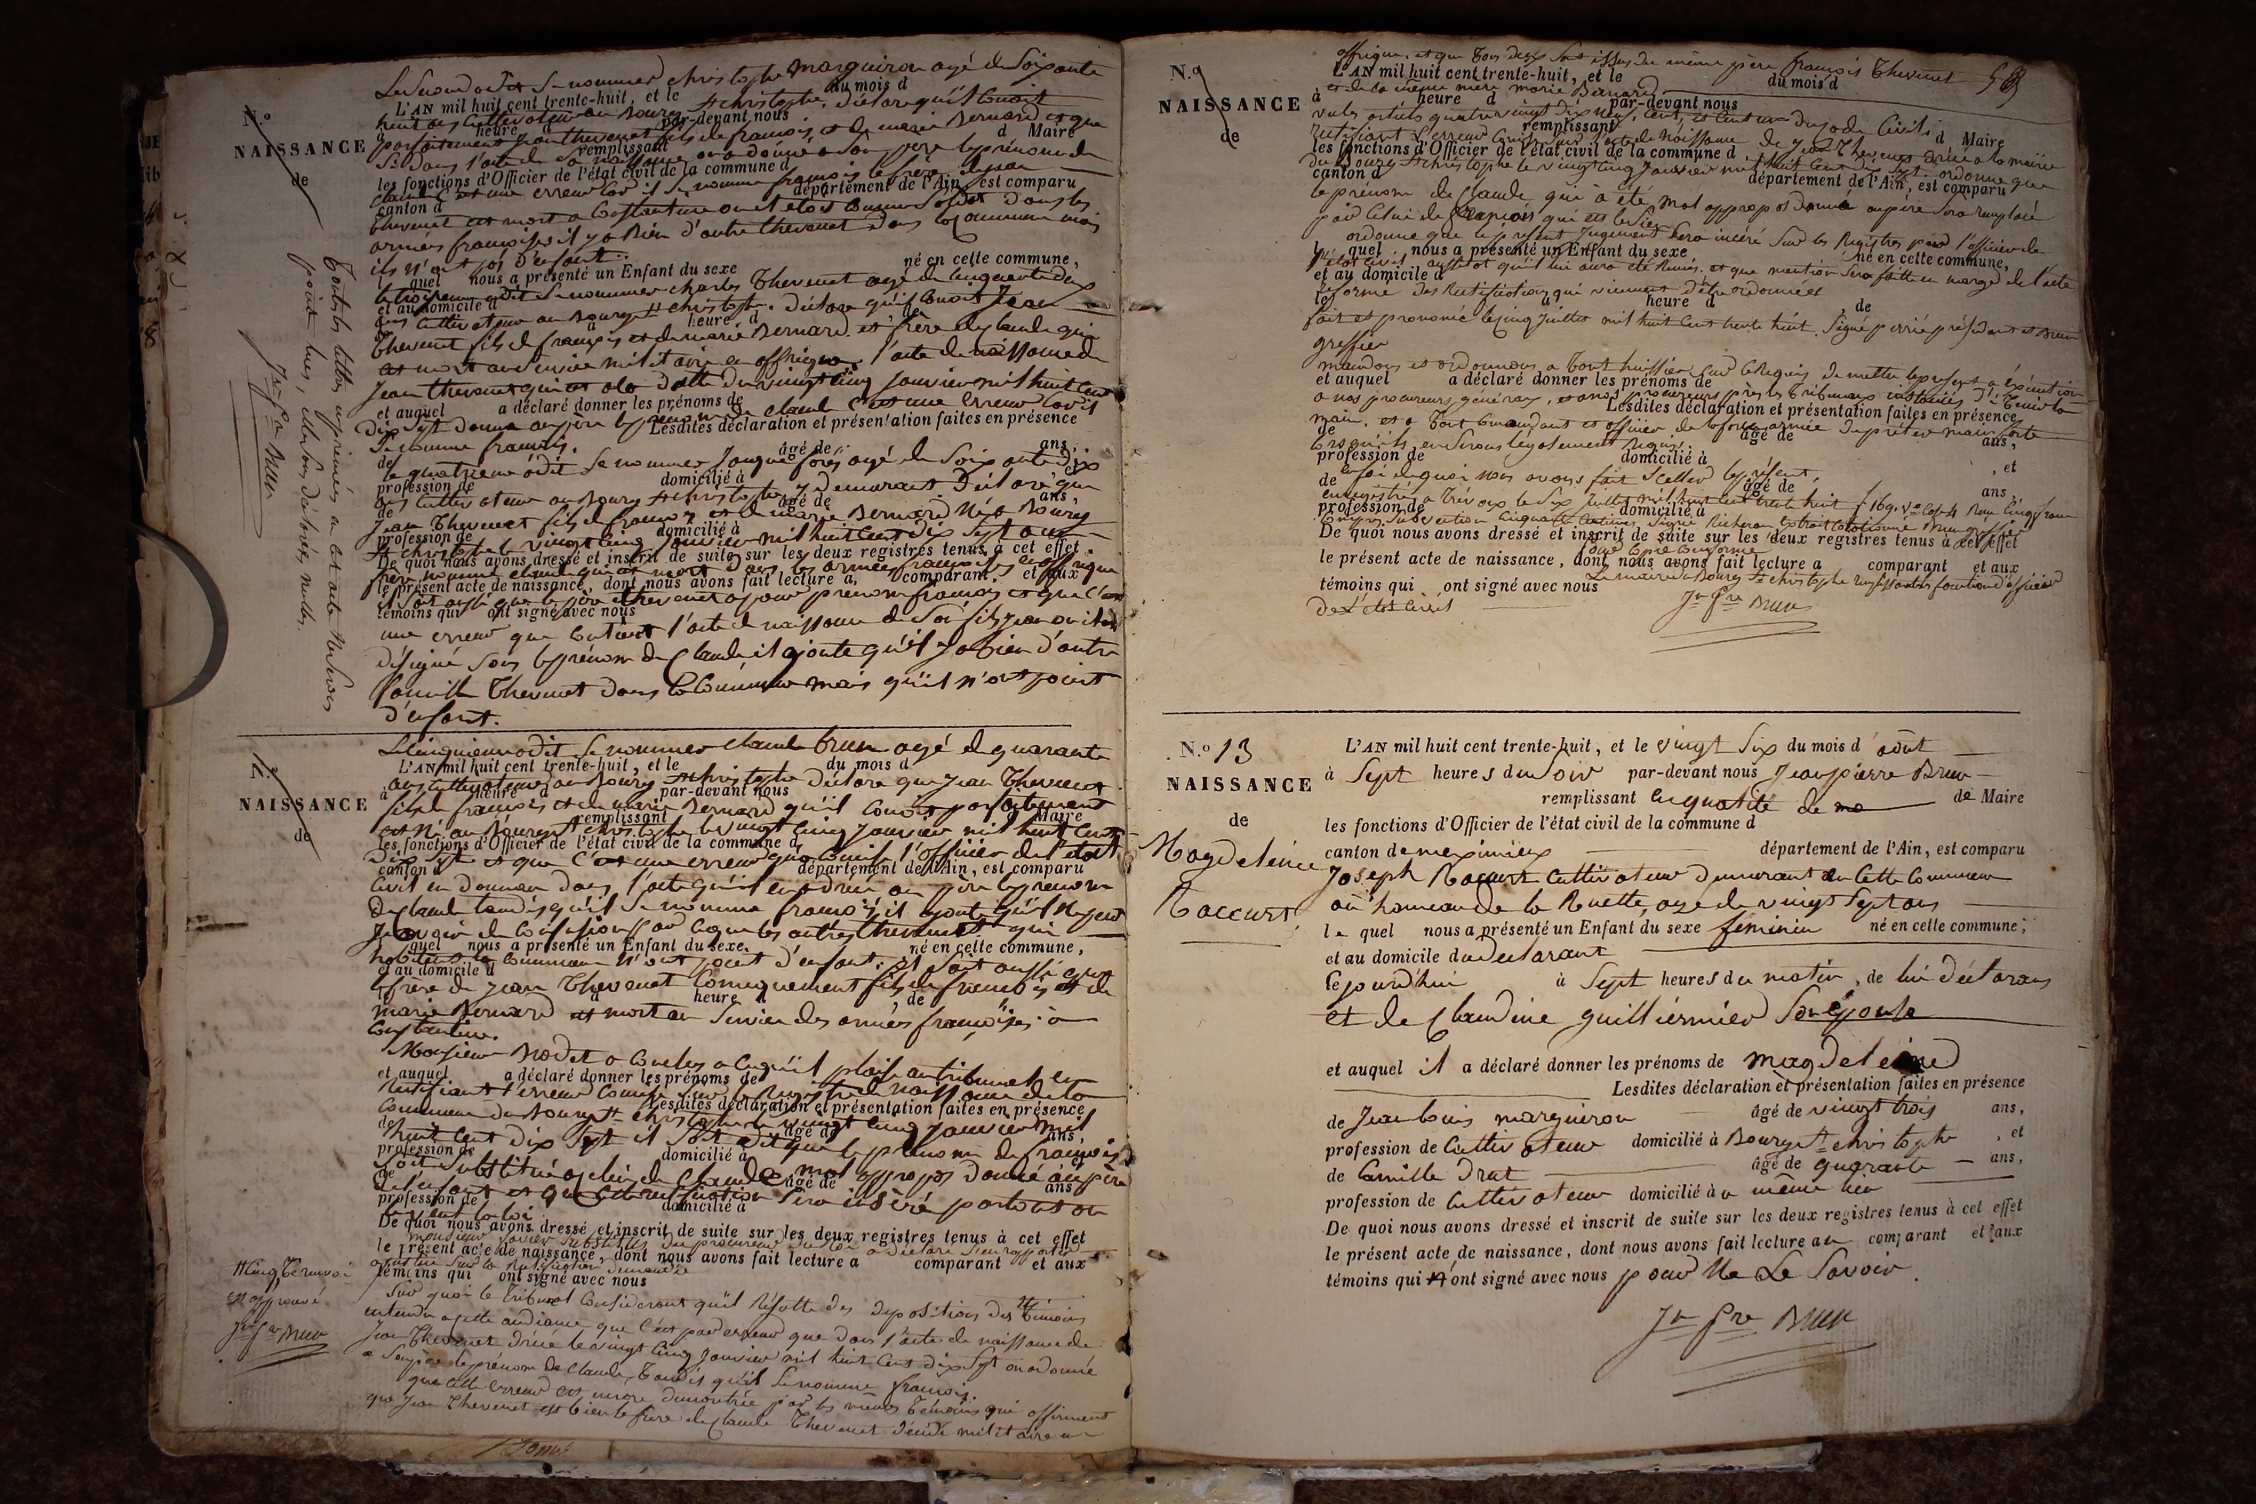 Le second a dit se nommer christophe marguiron agé de soixante
L'AN mil huit cent trente-huit, et le du mois d
huit ans cultivateur au Bourg St christophe. déclare qu'il connoit
à heure d par-devant nous
parfaitement jean thevenet fils de françois et de marie Bernard et que
remplissant d Maire
si dans l'acte de sa naissance on a donné a son père le prénom de
les fonctions d'Officier de l'état civil de la commune d
claude c'est une erreur car il se nomme françois le frère de jean
canton d département de l'Ain, est comparu
thevenet est mort a Constantine ou il etoit comme soldat dans les
armées françoises il y a bien d'autre thevenet dans la commune mais
ils n'ont pas d'enfant.
quel nous a présenté un Enfant du sexe né en cette commune,
le troisieme a dit se nommer charles Thevenet agé de cinquante deux
et au domicile d
ans cultivateur au Bourg St christophe. déclare qu'il connoit Jean
à heure d , de
Thevenet fils de françois et de marie Bernard et frère de claude qui
est mort au service militaire en affrique. l'acte de naissance de
Jean thevenet qui est a la datte du vingt cinq janvier mil huit cent
et auquel a déclaré donner les prénoms de
dix sept donne au père le prénom de claude c'est une erreur car il
Lesdites déclaration et présentation faites en présence
se nomme françois.
de âgé de ans,
le quatrieme a dit se nommer agé de soixante dix
profession de domicilié à , et
ans cultivateur au Bourg St christophe y demeurant déclare que
de âgé de ans,
Jean Thevenet fils de françois et de marie Bernard né a Bourg
profession de domicilié à
St christophe le vingt cinq janvier mil huit cent dix sept a un
De quoi nous avons dressé et inscrit de suite sur les deux registres tenus à cet effet
frère nommé claude qui est mort dans les armées françoises en affrique
le présent acte de naissance, dont nous avons fait lecture a comparant, et aux
il sait aussi que le père thevenet a pour prénom françois et que c'est
témoins qui ont signé avec nous
une erreur que contient l'acte de naissance de son fils jean ou il est
désigné sous le prénom de Claude il ajoute qu'il y a bien d'autre
famille Thevenet dans la commune mais qu'il n'ont point
d'enfant.
N.o
NAISSANCE
de
Toutes les lettres imprimées au cet acte ne seront
point lues, elles sont déclarées nulles.
Jn Pre Brun
Le cinquieme a dit se nommer claude brun agé de quarante
L'AN mil huit cent trente-huit, et le du mois d
ans cultivateur au Bourg St christophe déclare que jean Thevenet
à heure d par-devant nous
fils de françois et de marie Bernard qu'il connoit parfaitement
remplissant d Maire
est né au Bourg St christophe le vingt cinq janvier mil huit cent
les fonctions d'Officier de l'état civil de la commune d
dix sept et que c'est une erreur qu'a commis l'officier de l'etat
canton d département de l'Ain, est comparu
civil en donnant dans l'acte qu'il en a dressé au père le prenom
de claude tandis qu'il se nomme françois, il ajoute qu'il ne peut
y avoir de confusion par ce que les autres thevenet qui
quel nous a présenté un Enfant du sexe né en cette commune,
habitent la commune n'ont point d'enfant. il sait aussi que
et au domicile d
le frère de jean Thevenet comme fils de françois et de
à heure d , de
marie Bernard est mort au service des armées françoises a
Constantine.
Monsieur Rodet a conclu a ce qu'il plaise au tribunal en
et auquel a déclaré donner les prénoms de
rectifiant l'erreur commise sur le registre de naissance de la
Lesdites déclaration et présentation faites en présence
commune du Bourg St christophe le vingt cinq janvier mil
de âgé de ans,
huit cent dix sept il soit dit que le prénom de françois
profession de domicilié à , et
soit substitué a celui de Claude mal appropos donné au père
de âgé de ans,
de l'enfant et que cette rectification sera inséré partout ou
profession de domicilié à
le veut la loi
De quoi nous avons dressé et inscrit de suite sur les deux registres tenus à cet effet
monsieur substitut du procureur du Roi a déclaré s'en rapporter
le présent acte de naissance, dont nous avons fait lecture a comparant et aux
a justice sur la rectification demandée
témoins qui ont signé avec nous
Sur quoi le tribunal considerant qu'il résulte des depositions des temoins
entendu a cette audience que c'est par erreur que dans l'acte de naissance de
Jean Thevenet dressé le vingt cinq janvier mil huit cent dix sept on a donné
a son père le prénom de claude, tandis qu'il se nomme françois.
que cette erreur est encore démontrée par les memes témoins qui affirment
que jean Thevenet est bien le frere de claude Thevenet décédé militaire en
N.o
NAISSANCE
de
cinq renvoi
approuvé
Jn Pre Brun
affrique. et que tous deux sont issus du même père françois Thevenet
L'AN mil huit cent trente-huit, et le du mois d
et de la même mere marie Bernard
à heure d par-devant nous
vu les articles quatre vingt dix neuf, cent, et cent un du code Civil
remplissant d Maire
rectifiant l'erreur commise sur l'acte de naissance de jean Thevenet dressé a la mairie
les fonctions d'Officier de l'état civil de la commune d
du Bourg St christophe le vingt cinq Janvier mil huit cent dix sept. ordonne que
canton d département de l'Ain, est comparu
le prénom de Claude qui a été mal appropos donné au père sera remplacé
par celui de François qui est le sien
ordonne que le présent Jugement sera inséré sur les Registres par l'officier de
quel nous a présenté un Enfant du sexe né en cette commune,
l'etat civil aussitot qu'il lui aura été remis, et que mention sera faite en marge de l'acte
et au domicile d
reformé des rectifications qui viennent d'être ordonnées
à heure d de
fait et prononcé le cinq juillet mil huit cent trente huit. Signé perrié président et Brun
greffier
mandons et ordonnons a tout huissier sur ce Requis de mettre le present a éxécution
et auquel a déclaré donner les prénoms de
a nos procureurs généraux, et a nos procureurs près les tribunaux d'y tenir la
Lesdites déclaration et présentation faites en présence
main, et a tout commandant et officier de la force armée de prêter main forte
de âgé de ans,
lorsqu'ils en seront légalement Requis.
profession de domicilié à , et
en foi de quoi nous avons fait sceller le présent.
de âgé de ans,
enregistré a Trévoux le six juillet mil huit cent trente huit
profession de domicilié à
De quoi nous avons dressé et inscrit de suite sur les deux registres tenus à cet effet
pour copie conforme
le présent acte de naissance, dont nous avons fait lecture a comparant et aux
Le maire de Bourg St christophe remplissant les fonctions d'officier
témoins qui ont signé avec nous
de l'etat civil
Jn Pre Brun
N.o
NAISSANCE
de
N.o 13
NAISSANCE
de
Magdeleine
Raccurt
L'AN mil huit cent trente-huit, et le vingt six du mois d'août
à Sept heures du Soir par-devant nous Jean pierre Brun
remplissant en qualité de de Maire
les fonctions d'Officier de l'état civil de la commune d
canton de meximieux département de l'Ain, est comparu
Joseph Raccurt cultivateur demeurant en cette commune
au hameau de la Ruette, agé de vingt sept ans
le quel nous a présenté un Enfant du sexe féminin né en cette commune,
et au domicile du déclarant
ce jourd'hui à Sept heures du matin, de lui déclarant
et de Claudine guilliermier Son épouse
et auquel il a déclaré donner les prénoms de magdeleine
Lesdites déclaration et présentation faites en présence
de Jean louis marguiron âgé de vingt trois ans,
profession de cultivateur domicilié à Bourg St christophe , et
de Camille Drut âgé de quarante ans,
profession de cultivateur domicilié à u même lieu
De quoi nous avons dressé et inscrit de suite sur les deux registres tenus à cet effet
le présent acte de naissance, dont nous avons fait lecture au comparant et aux
témoins qui n'ont signé avec nous pour ne le Savoir.
Jn Pre Brun